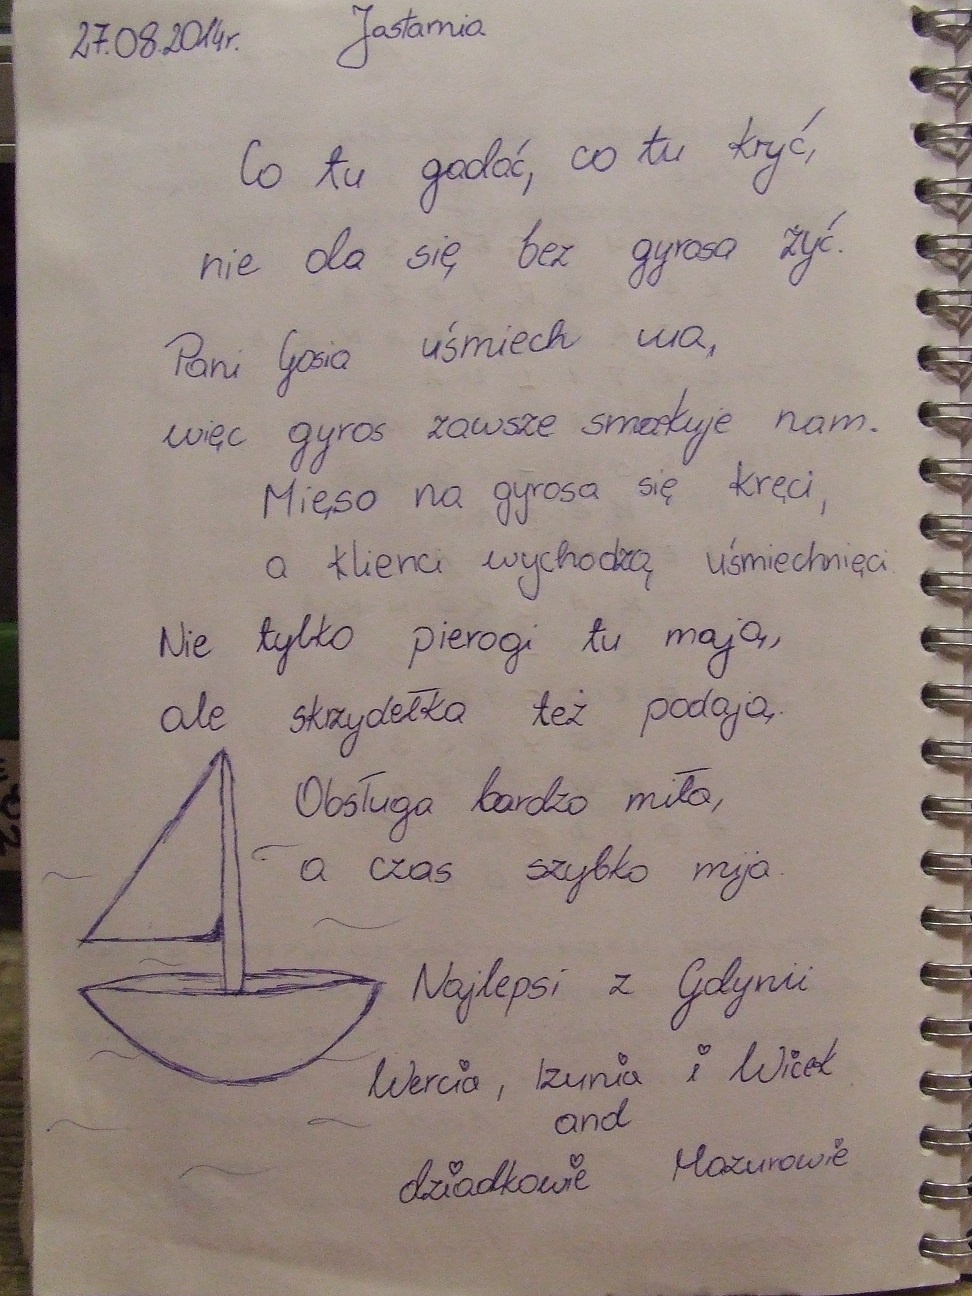 27.08.2014r. Jastarnia
Co tu gadać, co tu kryć,
nie da się bez gyrosa żyć.
Pani Gosia uśmiech ma,
więc gyros zawsze smakuje nam.
Mięso na gyrosa się kręci,
a klienci wychodzą uśmiechnięci.
Nie tylko pierogi tu mają,
ale skrzydełka też podają.
Obsługa bardzo miła,
a czas szybko mija.
Najlepsi z Gdynii
Wercia, Izunia i Wicek
and
dziadkowie Mazurowie